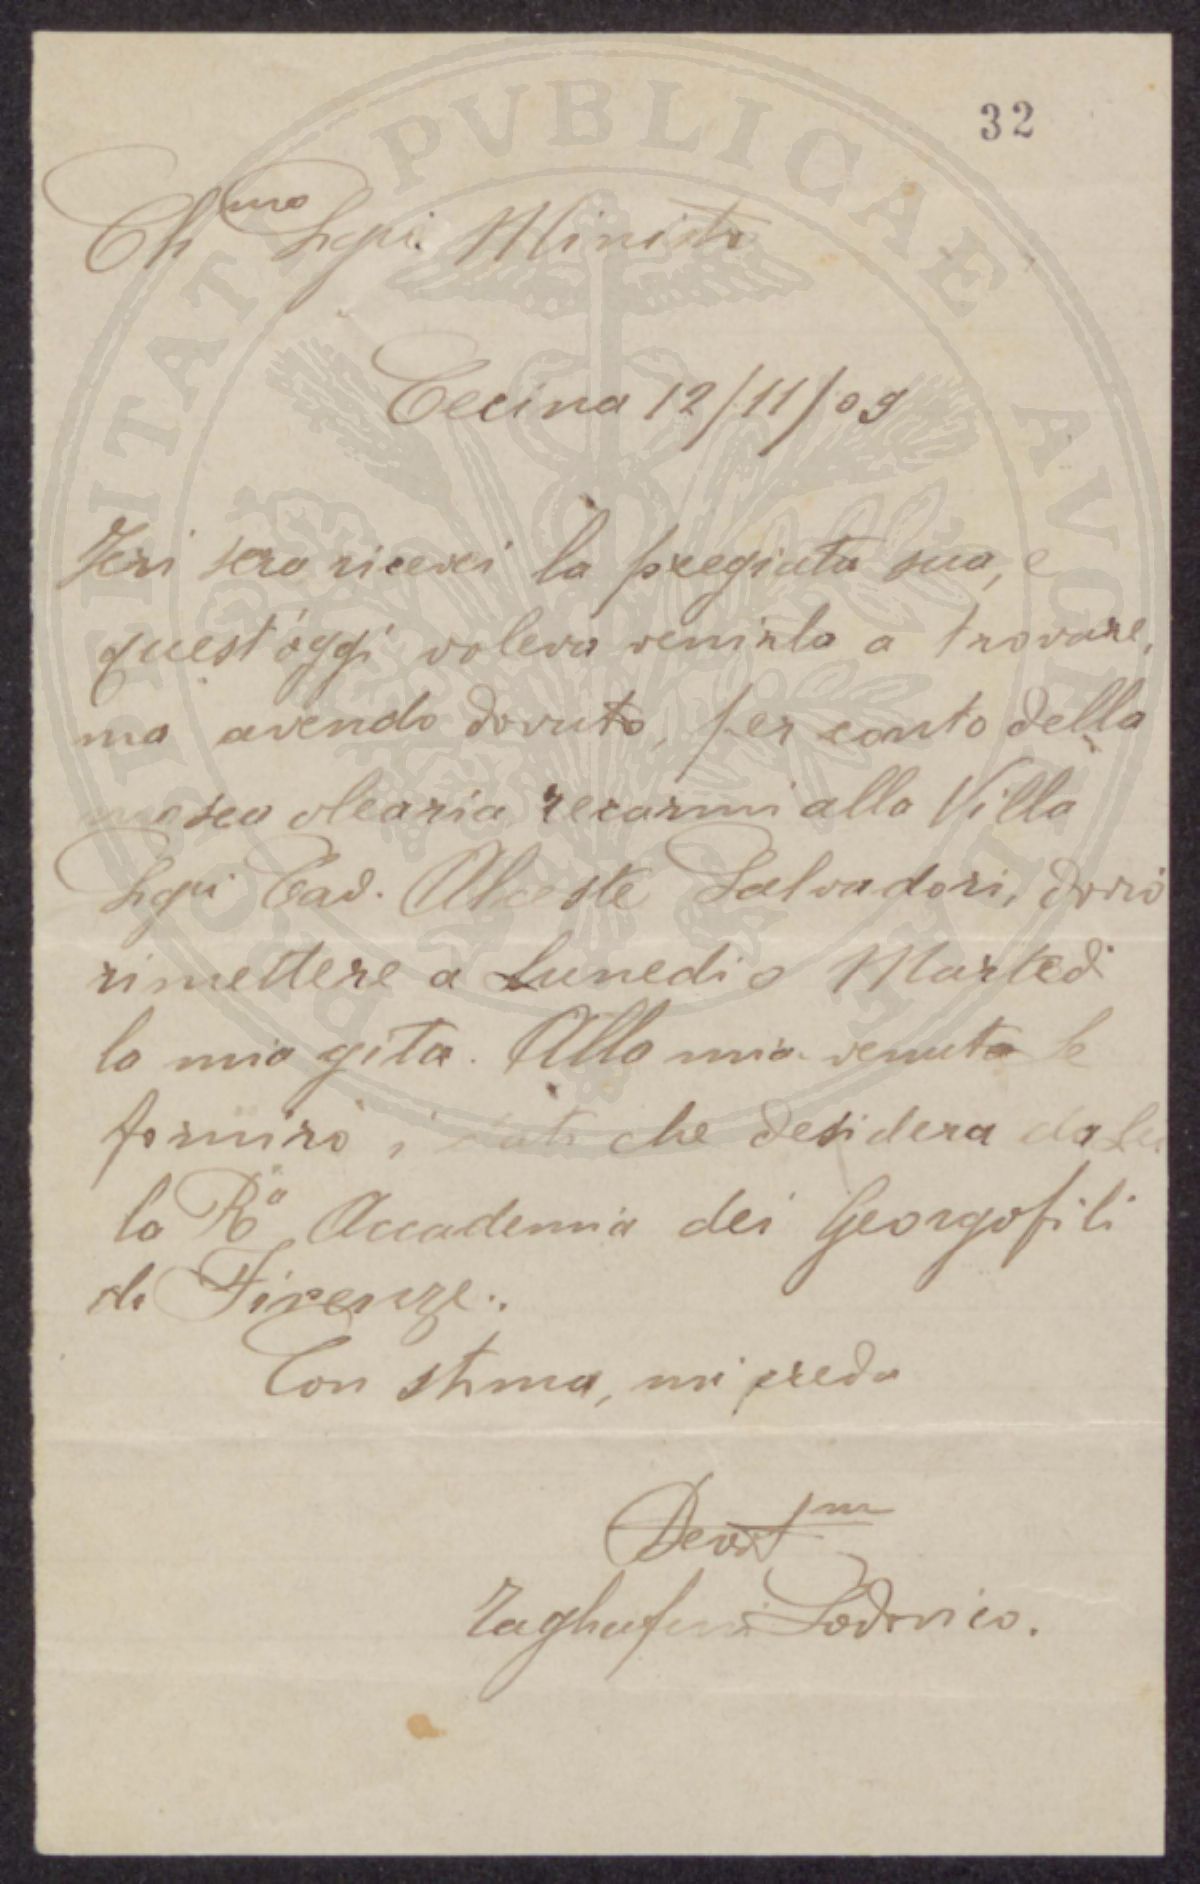 32
Ch.mo Sgri. Ministro
Cecina 12/11/09
Jeri sera ricevei la pregiata sua, e
quest'oggi voleva venirla a trovare,
ma avendo dovuto, per conto della
mosca olearia recarmi alla Villa
Sgri Cav. Alceste Salvadori, dovrò
rimettere a Lunedi o Martedì
la mia gita. Alla mia venuta Le
fornirò i dati che desidera da Lei
la R.a Accademia dei Georgofili
di Firenze.
Con stima, mi creda
Devotmo
Lodovico.
PROSPERITATI PVBLICAE AVGENDAE